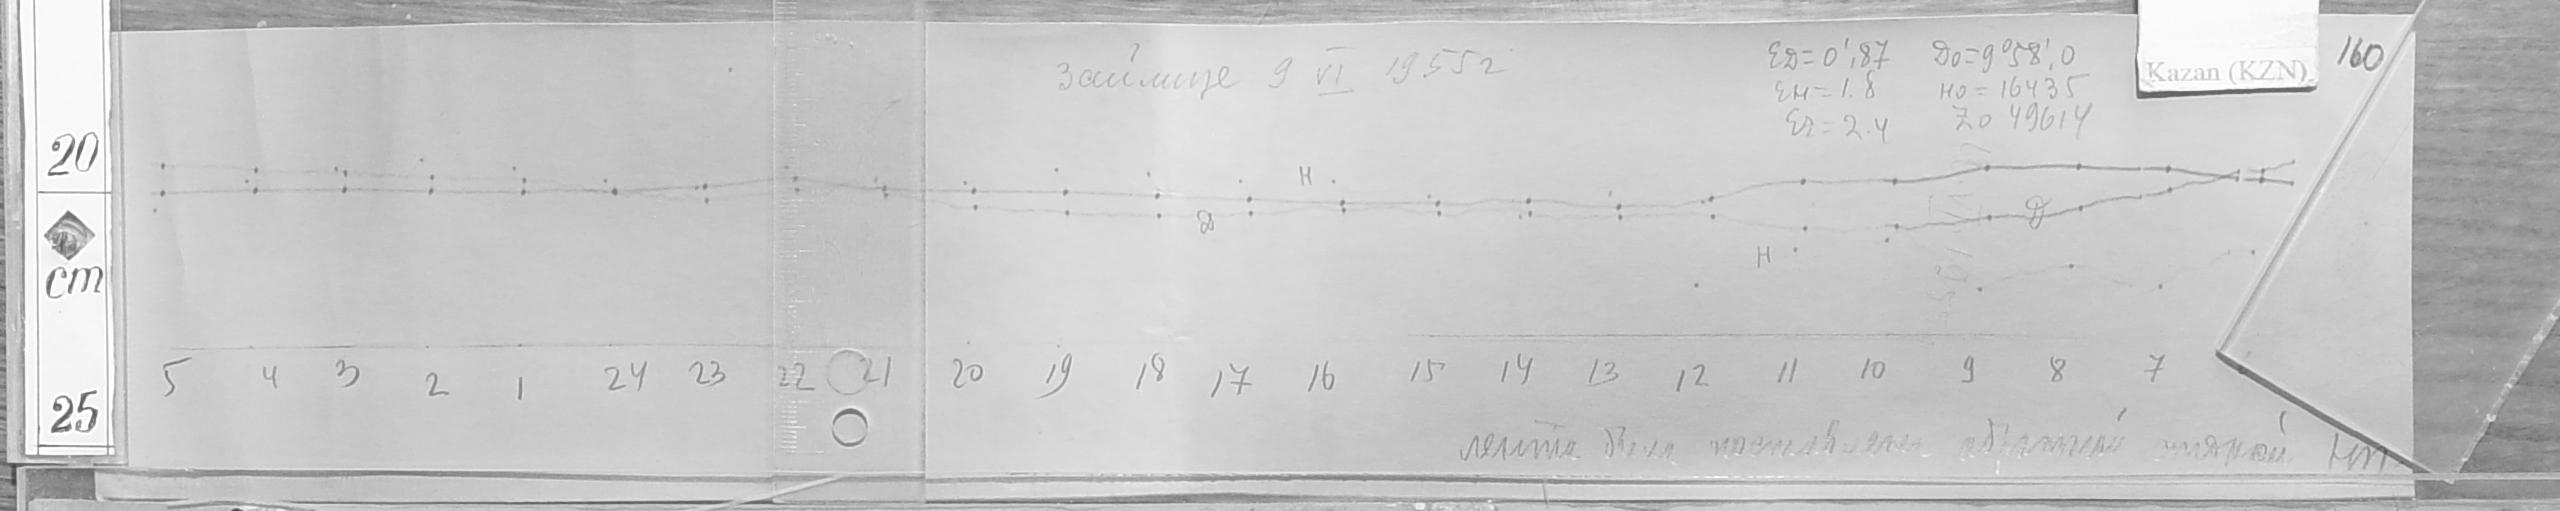 Займище 9 VI 1955г
ED=0',87 Do=9°58',0
EH=1.8 Ho=16435
EZ=2.4 Zo 49614
Kazan (KZN)
160
20
cm
25
H
D
D
H
5 4 3 2 1 24 23 22 21 20 19 18 17 16 15 14 13 12 11 10 9 8 7 6
лента была